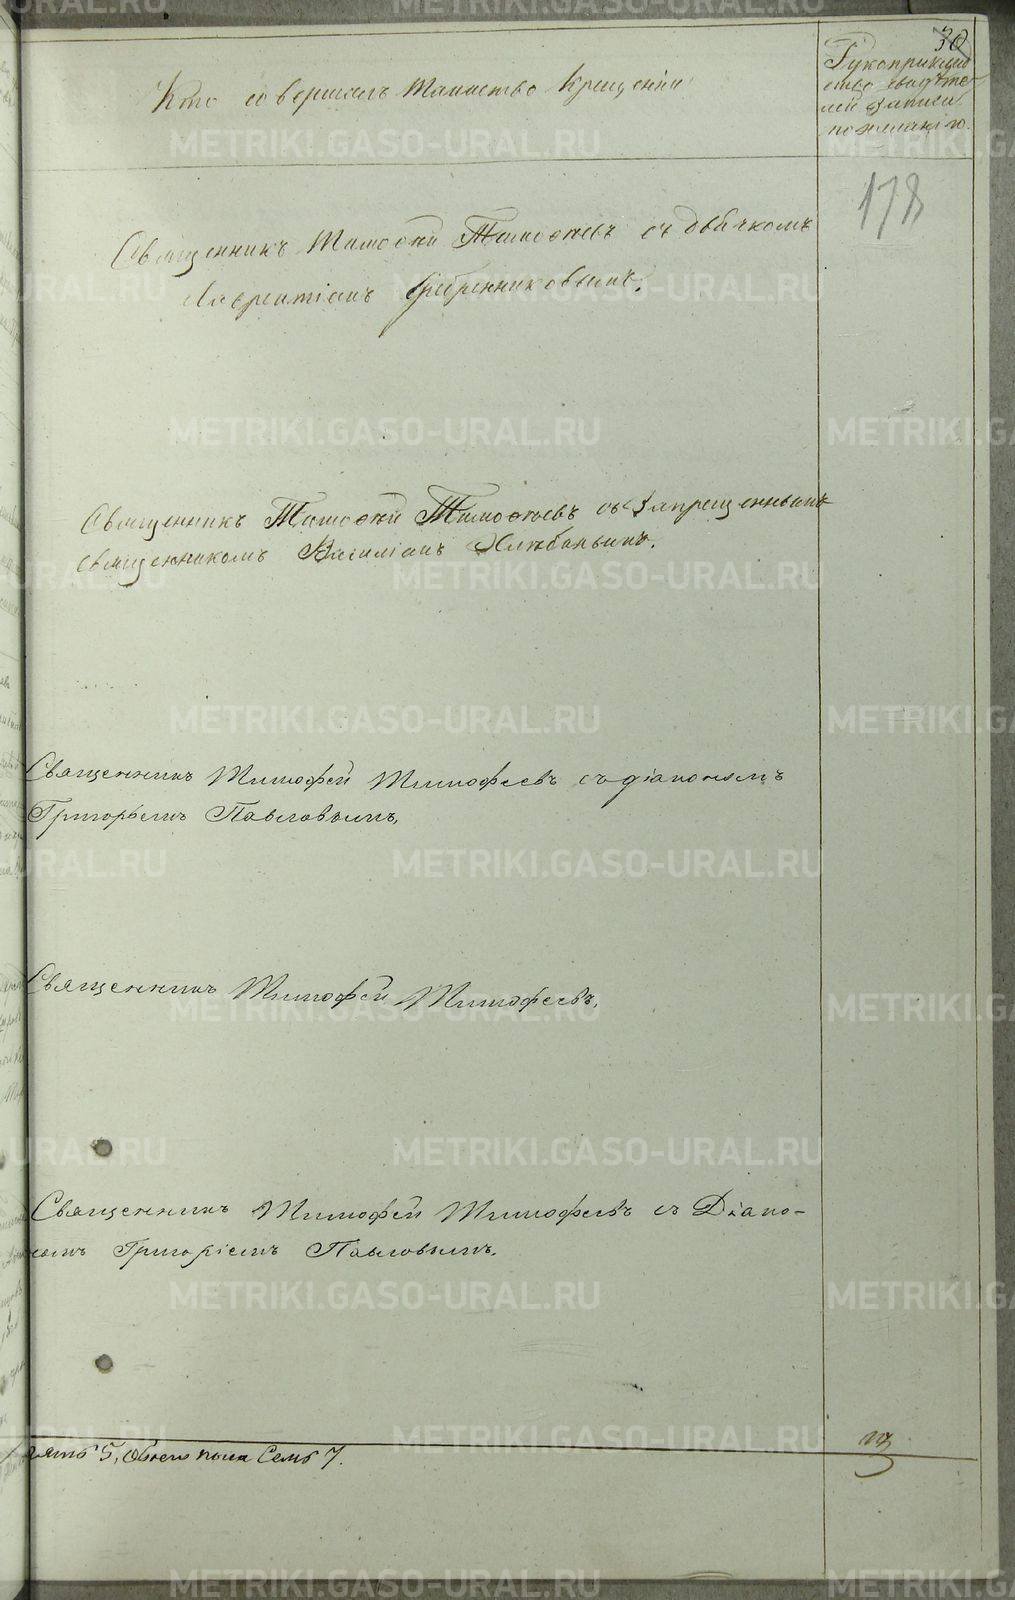 30
Кто совершалъ таинство крещенія
Рукоприклад
ство свидѣте
лей записи
по желанію.
178
Священникъ Тимоѳей Тимоѳеевъ съ дьячкомъ
Лаврентіемъ Гребенниковымъ.
Священникъ Тимоѳей Тимоѳеевъ съ запрещеннымъ
священникомъ Василіемъ Хлѣбинымъ.
Священникъ Тимофей Тимофеевъ съ діакономъ
Григорьемъ Павловымъ.
Священникъ Тимофей Тимофеевъ.
Священникъ Тимофей Тимофеевъ съ Діако-
номъ Григоріемъ Павловымъ.
пять 5, обоего пола семь 7.
METRIKI.GASO-URAL.RU